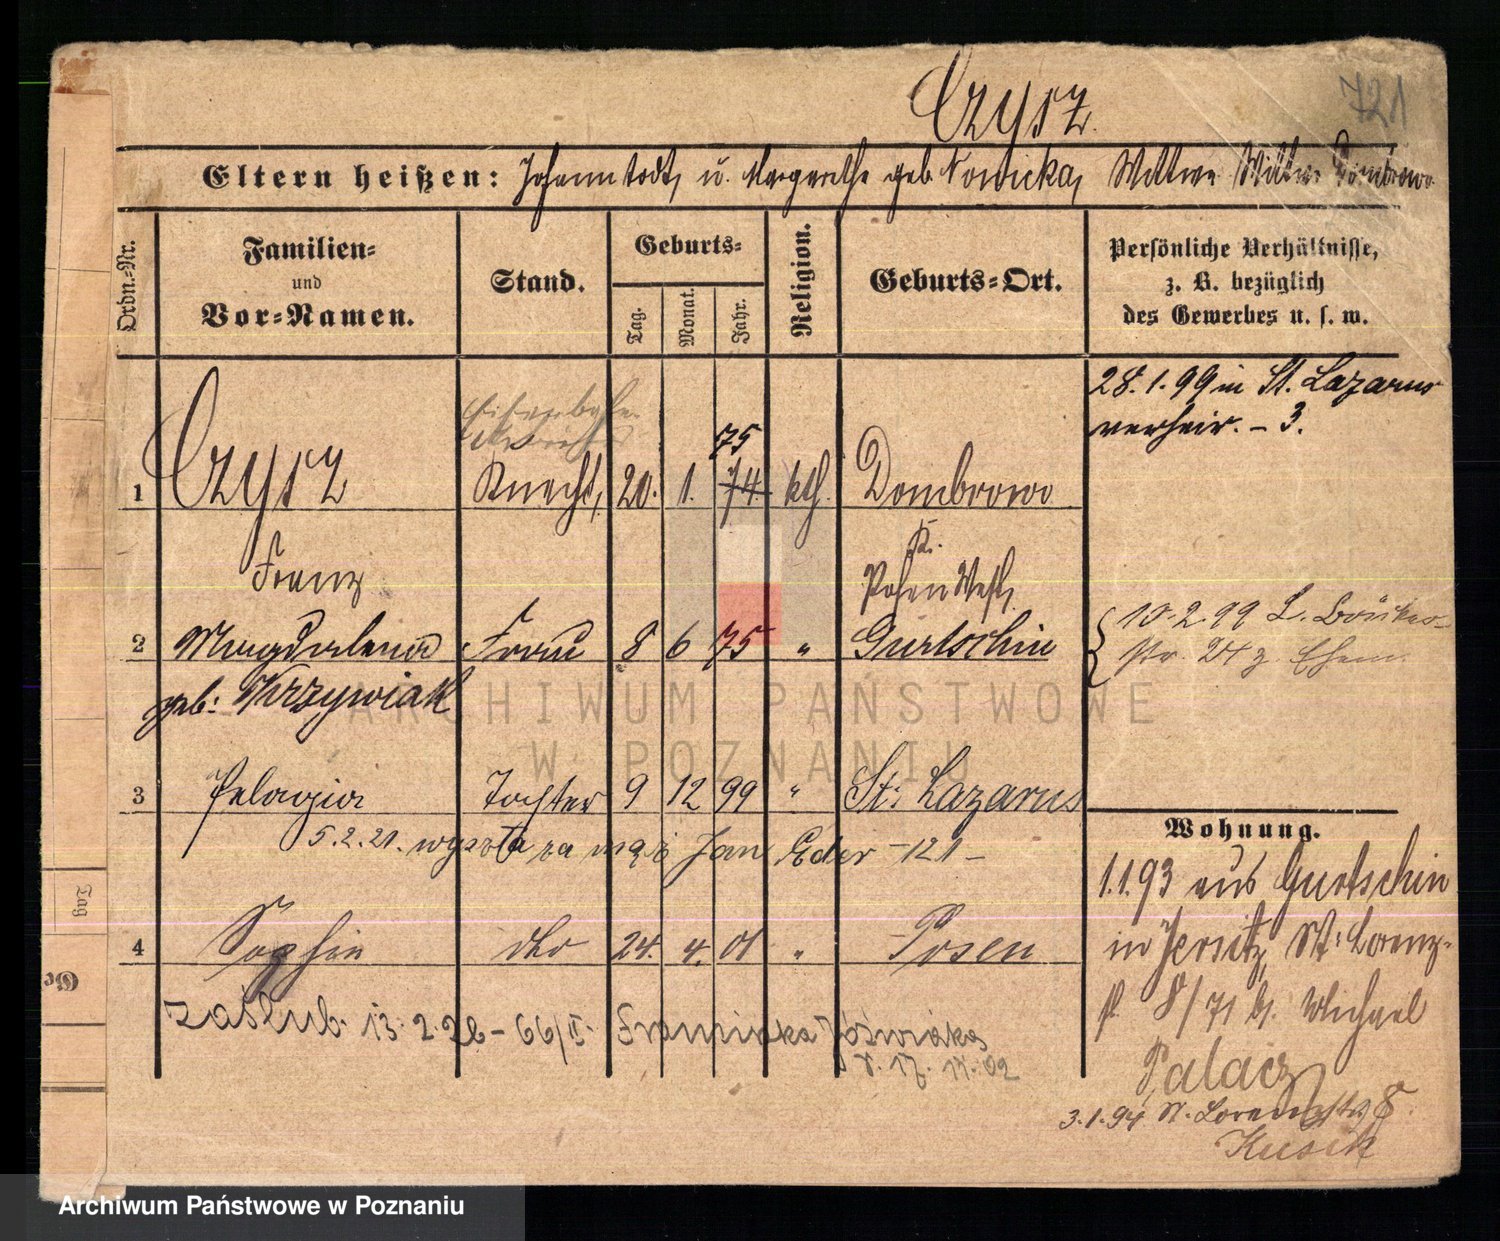 721
Czysz.
Eltern heißen: Johann todt, u. Margarethe geb. Nowicka, Wittwe Dombrowo
Ordn.-Nr.
Familien-
und
Vor-Namen.
Stand.
Geburts-
Tag.
Monat.
Jahr.
Religion.
Geburts-Ort.
Persönliche Verhältnisse,
z. B. bezüglich
des Gewerbes u. s. w.
28.1.99 in St. Lazarus
verheir. - 3.
75
1 Czysz Knecht, 20. 1. 74. kth. Dombrowo
Franz
Kr.
Posen West,
2 Magdalena Frau 8 6 75 " Gurtschin
geb: Krzywiak
10.2.99 L.
Str. 24 z. Ehem.
3 Pelagia Tochter 9 12 99 " St: Lazarus
5.2.21. wyszła za mąż Jan Eder -121-
4 Sophie dto 24. 4. 01 " Posen
zaślub. 13.2.26 - 66/II. Franciszka Jóźwiaka
r. 17. 11. 02
Wohnung.
1.1.93 aus Gurtschin
in Jersitz, St: Lorenz-
st. 8/71 b. Michael
Palacz
3.1.94 St. Lorenzstr. 8.
Kusik
Tag
ARCHIWUM PAŃSTWOWE
W POZNANIU
Archiwum Państwowe w Poznaniu